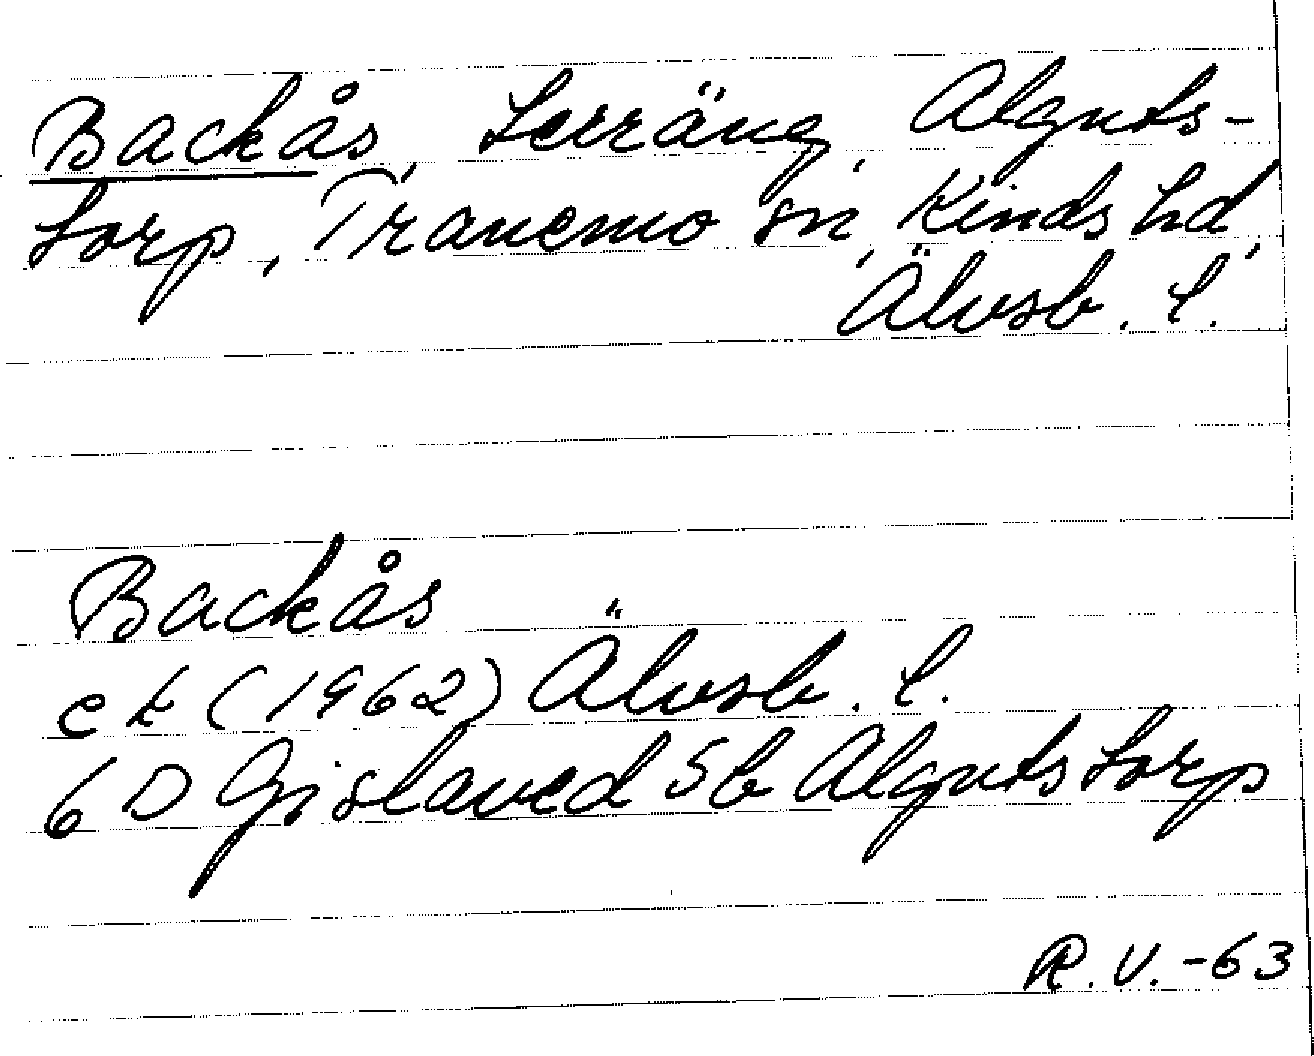 Backås, terräng, Alguts-
torp, Tranemo sn, Kinds hd,
Älvsb. l.
Backås
ek (1962) Älvsb. l.
6 D Gislaved 5b Algutstorp
R.V.-63